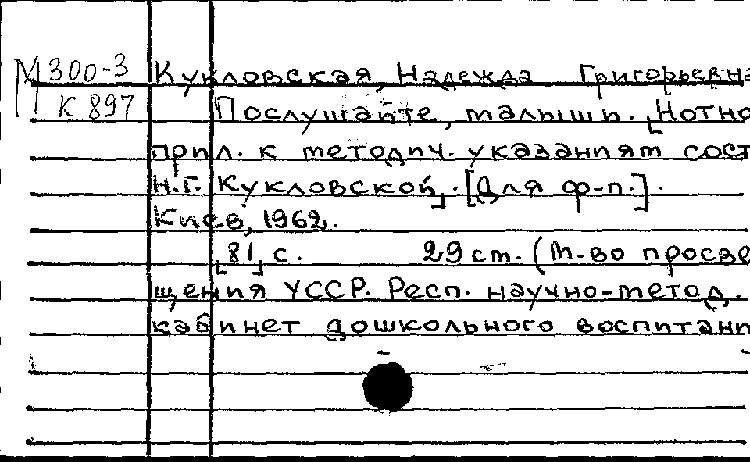 М 300-3
К 897
Кукловская, Надежда Григорьевна
Послушайте, малыши. [Нотно
прил. к методич. указаниям сост
Н.Г. Кукловской]. [Для ф-п.].
Киев, 1962.
[81] с. 29 см. (М-во просве
щения УССР. Респ. научно-метод.
кабинет дошкольного воспитани